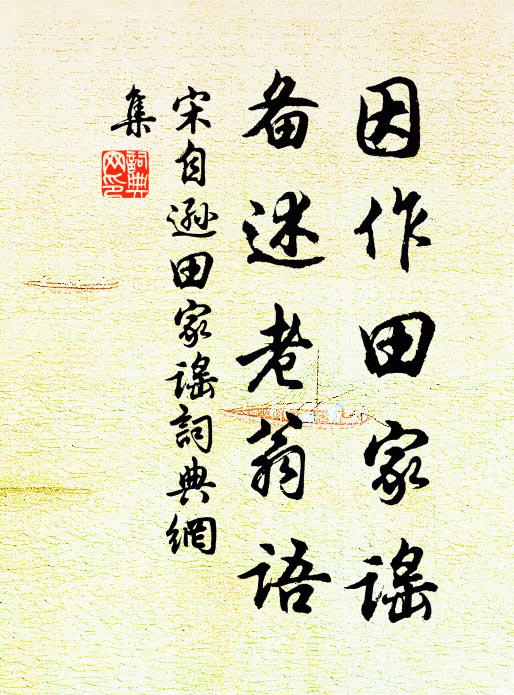 因作田家谣
备述老翁语
宋自逊田家谣詞典網
集
詞典
网印